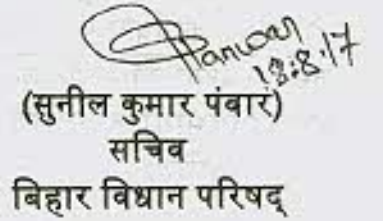 Panwar
18.8.17
(सुनील कुमार पंवार)
सचिव
बिहार विधान परिषद्